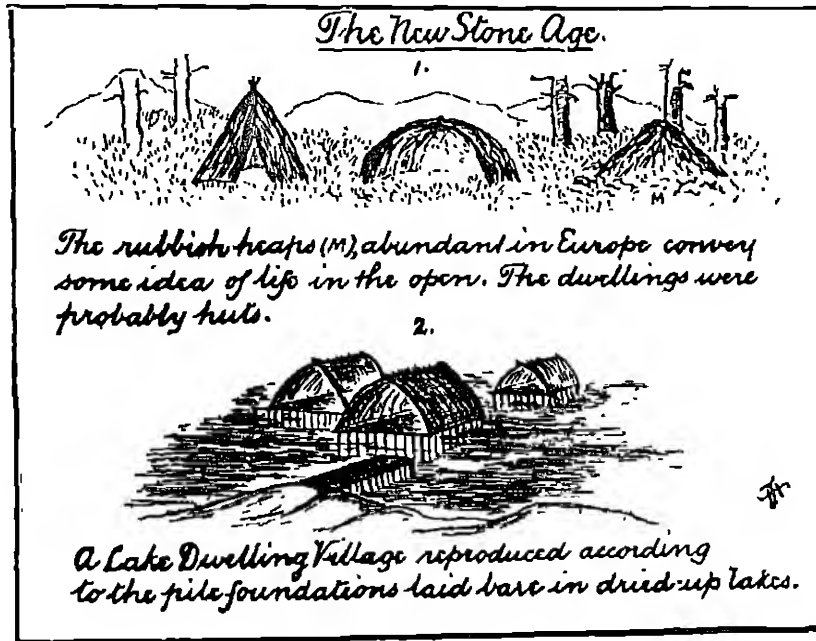 The New Stone Age.
1.
M
The rubbish heaps (M), abundant in Europe convey
some idea of life in the open. The dwellings were
probably huts.
2.
A Lake Dwelling Village reproduced according
to the pile foundations laid bare in dried-up lakes.